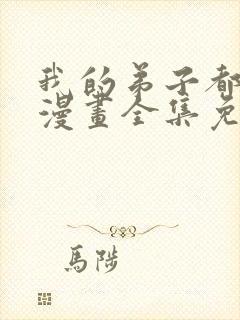 我的弟子都
漫畫全集免
馬陟